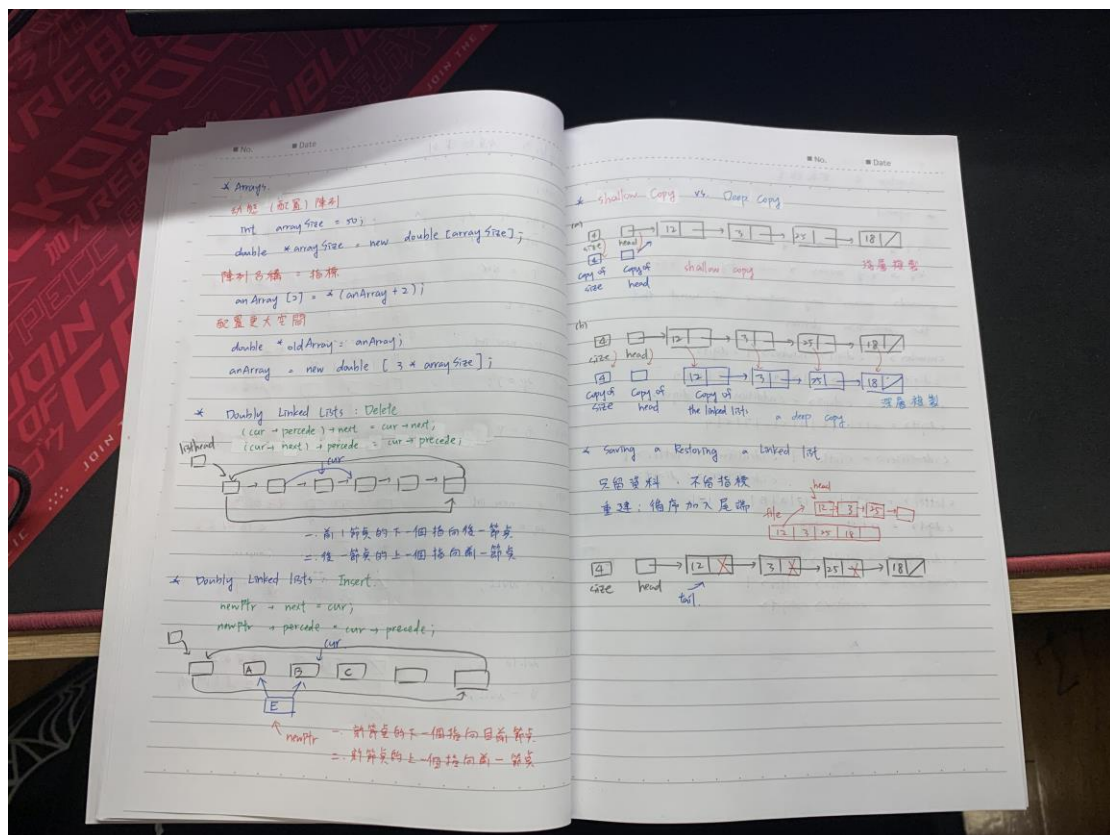 ■ No. ■ Date
* Arrays.
動態 (配置) 陣列
int arraySize = 50;
double *arraySize = new double [arraySize];
陣列名稱 = 指標
anArray [2] = *(anArray + 2);
配置更大空間
double *oldArray = anArray;
anArray = new double [ 3 * arraySize ];
* Doubly Linked Lists : Delete
(cur → percede) → next = cur → next;
(cur → next) → percede = cur → precede;
listhead
cur
一. 前一節點的下一個指向後一節點
二. 後一節點的上一個指向前一節點
* Doubly Linked lists : Insert.
newPtr → next = cur;
newPtr → percede = cur → precede;
cur
A B C
E
newPtr
一. 新節點的下一個指向目前節點
二. 新節點的上一個指向前一節點
■ No. ■ Date
* Shallow Copy vs. Deep Copy
(a)
4 12 3 25 18
size head
4
copy of size
copy of head
shallow copy
淺層複製
(b)
4 12 3 25 18
size head
4 12 3 25 18
copy of size
copy of head
Copy of the linked list
a deep copy
深層複製
* Saving a Restoring a Linked list
只留資料、不留指標
重建：循序加入尾端
head
12 3 25
file
12 3 25 18
4 12 3 25 18
size head
tail.
JOIN THE
加
JOIN
OF